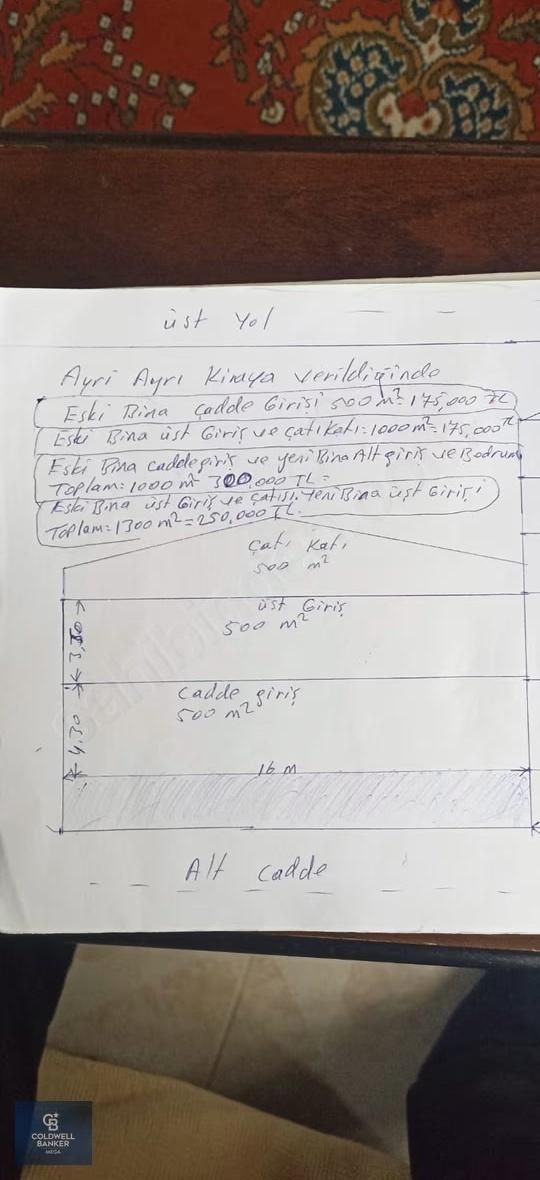 üst Yol
Ayri Ayrı Kiraya verildiğinde
Eski Bina Cadde Girişi 500 m² = 175,000 TL
Eski Bina üst Giriş ve çatı katı = 1000 m² = 175,000 TL
Eski Bina cadde giriş ve yeni Bina Alt giriş ve Bodrum
Toplam = 1000 m² 300,000 TL =
Eski Bina üst Giriş ve çatısı. Yeni Bina üst Girişi
Toplam = 1300 m² = 250,000 TL.
Çatı Katı
500 m²
üst Giriş
500 m²
Cadde giriş
500 m²
4.30
16 m
Alt Cadde
sahibinden
CB
COLDWELL
BANKER
MEGA